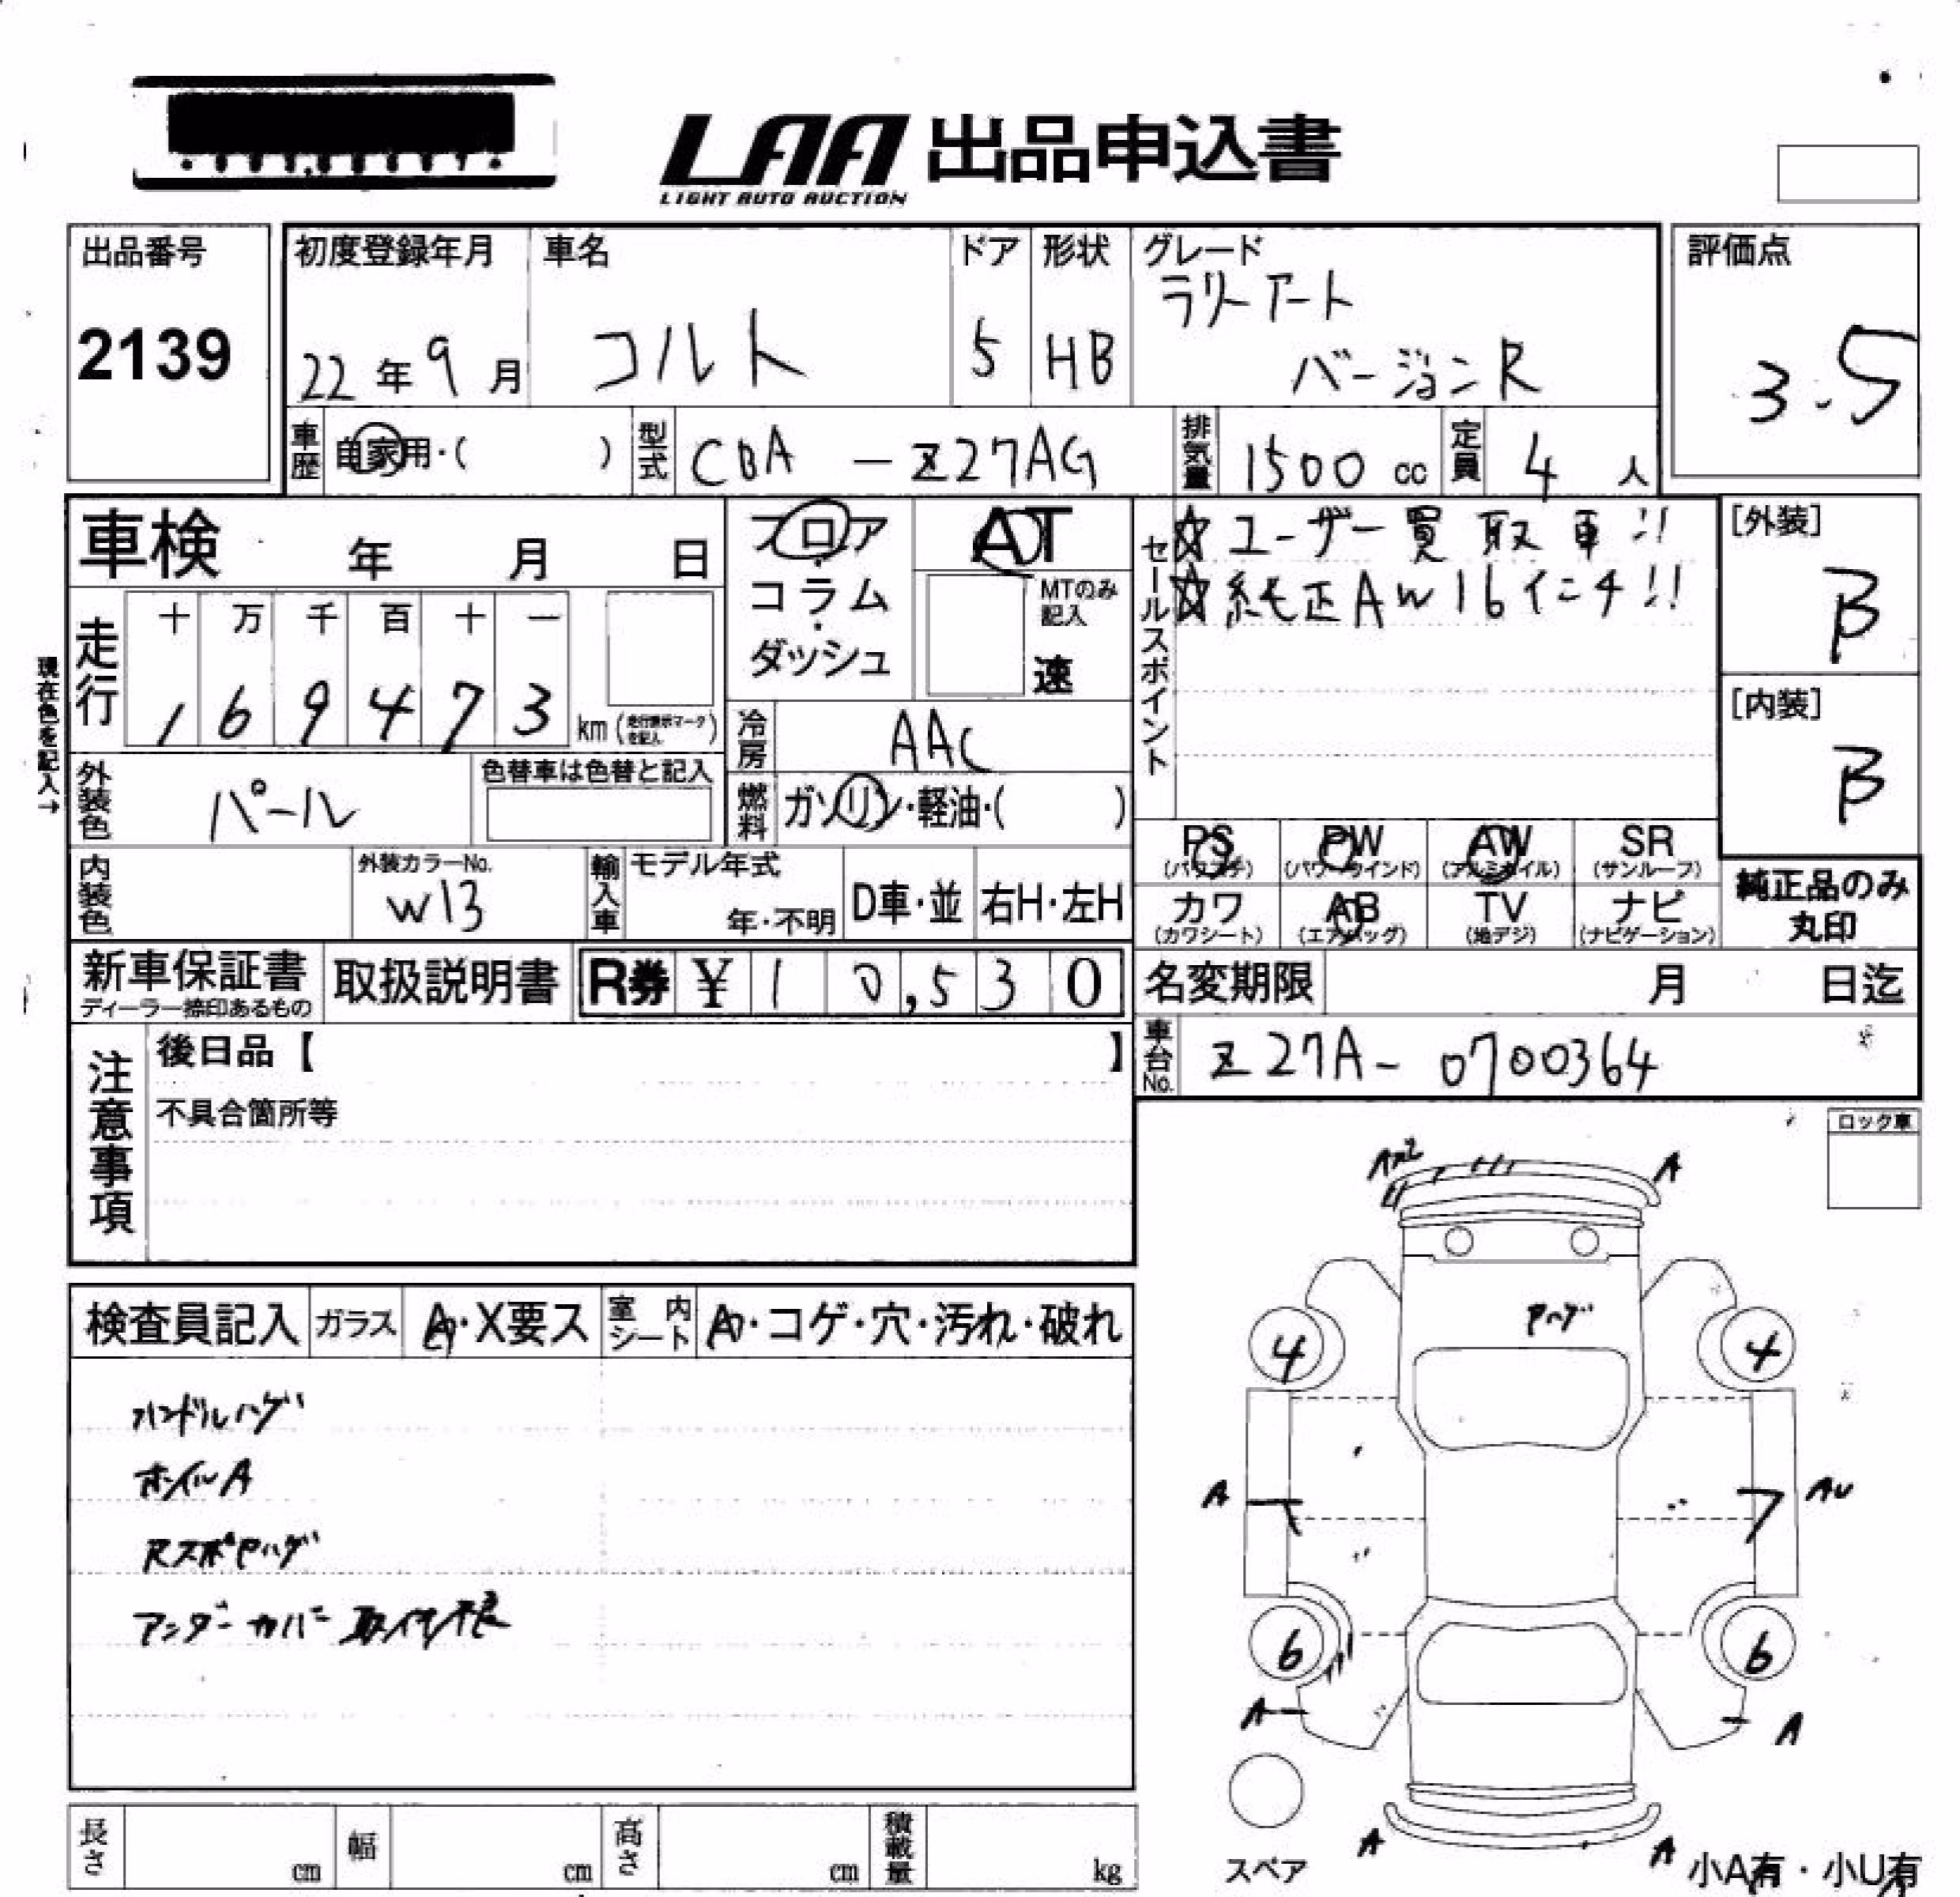 LAA 出品申込書
LIGHT AUTO AUCTION
出品番号
2139
初度登録年月
22年9月
車名
コルト
ドア
5
形状
HB
グレード
ラリーアート
バージョンR
評価点
3.5
車歴
自家用・( )
型式
CBA - Z27AG
排気量
1500 cc
定員
4 人
車検 年 月 日
フロア・コラム・ダッシュ
AT
MTのみ記入
速
セールスポイント
☆ユーザー買取車!!
☆純正AW16インチ!!
[外装]
B
[内装]
B
現在色を記入→
走行
十 万 千 百 十 一
1 6 9 4 7 3 km
(走行表示マークを記入)
冷房
AAC
外装色
パール
色替車は色替と記入
燃料
ガソリン・軽油・( )
内装色
外装カラーNo.
W13
輸入車
モデル年式
年・不明
D車・並
右H・左H
PS
(パワステ)
PW
(パワーウインド)
AW
(アルミホイル)
SR
(サンルーフ)
カワ
(カワシート)
AB
(エアバッグ)
TV
(地デジ)
ナビ
(ナビゲーション)
純正品のみ
丸印
新車保証書
ディーラー捺印あるもの
取扱説明書
R券 ¥ 1 0,5 3 0
名変期限 月 日迄
車台No.
Z27A- 0700364
注意事項
後日品【 】
不具合箇所等
ロック車
検査員記入
ガラス
A・X要ス
室内シート
・コゲ・穴・汚れ・破れ
ハンドルハゲ
ホイルA
RスポPハゲ
アンダーカバー取付不良
A×2
A
Pハゲ
4
4
A
AU
6
6
A
A
A
A
スペア
小A有・小U有
長さ cm
幅 cm
高さ cm
積載量 kg